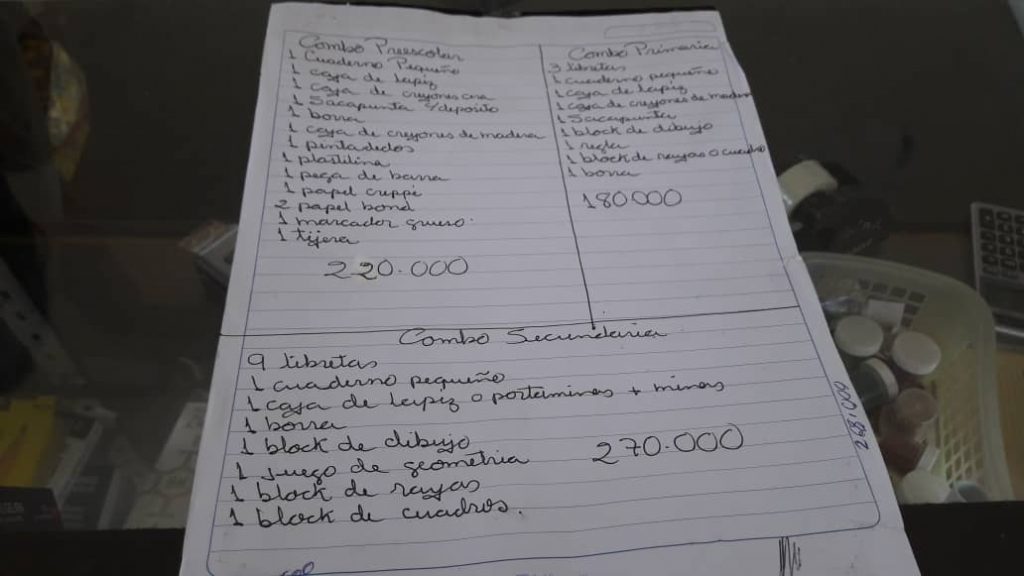 Combo Preescolar
1 Cuaderno Pequeño
1 caja de lapiz
1 caja de creyones cera
1 Sacapunta s/deposito
1 borra
1 caja de creyones de madera
1 pintadedos
1 plastilina
1 pega de barra
1 papel creppé
2 papel bond
1 marcador grueso.
1 tijera
220.000
Combo Primaria
3 libretas
1 cuaderno pequeño
1 caja de lapiz
1 caja de creyones de madera
1 Sacapunta
1 block de dibujo
1 regla
1 block de rayas o cuadro
1 borra
180.000
Combo Secundaria
9 libretas
1 cuaderno pequeño
1 caja de lapiz o portaminas + minas
1 borra
1 block de dibujo
1 juego de geometria
1 block de rayas
1 block de cuadros.
270.000